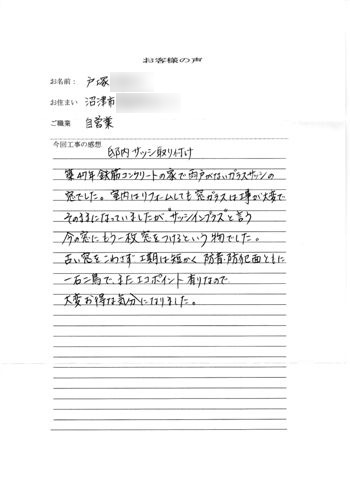 お客様の声
お名前： 戸塚
お住まい 沼津市
ご職業 自営業
今回工事の感想
邸内サッシ取り付け
築47年鉄筋コンクリートの家で雨戸がないガラスサッシの
窓でした。室内はリフォームしても窓ガラスは工事が大変で
そのままになっていましたが、"サッシインプラス"と言う
今の窓にもう一枚窓をつけるという物でした。
古い窓をこわさず工期は短かく防音・防犯面ともに
一石二鳥で、またエコポイント有りなので
大変お得な気分になりました。